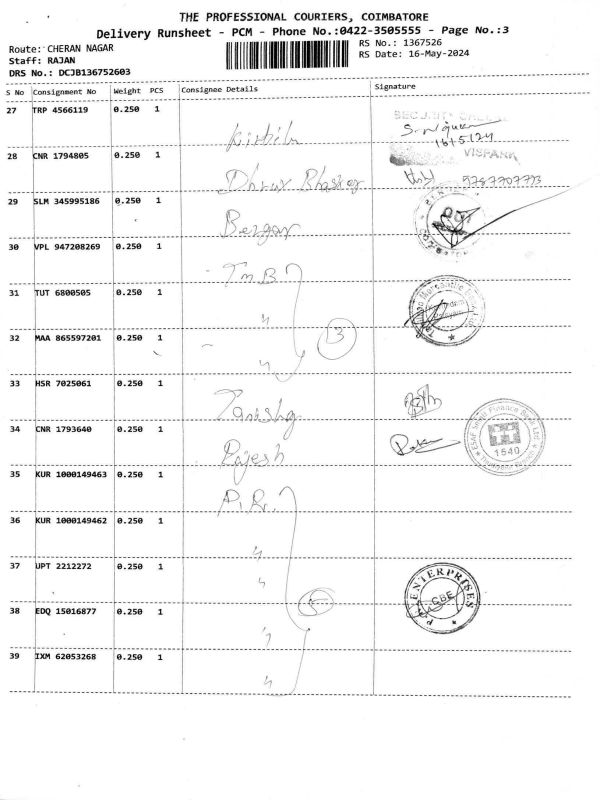 THE PROFESSIONAL COURIERS, COIMBATORE
Delivery Runsheet - PCM - Phone No.:0422-3505555 - Page No.:3
Route: CHERAN NAGAR
RS No.: 1367526
Staff: RAJAN
RS Date: 16-May-2024
DRS No.: DCJB136752603
S No Consignment No Weight PCS Consignee Details Signature
27 TRP 4566119 0.250 1
16/5/24
28 CNR 1794805 0.250 1 Dhruv Bhaskar
VISPARK
29 SLM 345995186 0.250 1 Bezgar
30 VPL 947208269 0.250 1 TMB
31 TUT 6800505 0.250 1 "
32 MAA 865597201 0.250 1 "
3
33 HSR 7025061 0.250 1 Tanishq
34 CNR 1793640 0.250 1 Rajesh
ESAF Small Finance Bank Ltd
1540
35 KUR 1000149463 0.250 1 P.R.
36 KUR 1000149462 0.250 1 "
37 UPT 2212272 0.250 1 "
P.R. ENTERPRISES
CBE
38 EDQ 15016877 0.250 1 "
5
39 IXM 62053268 0.250 1 "